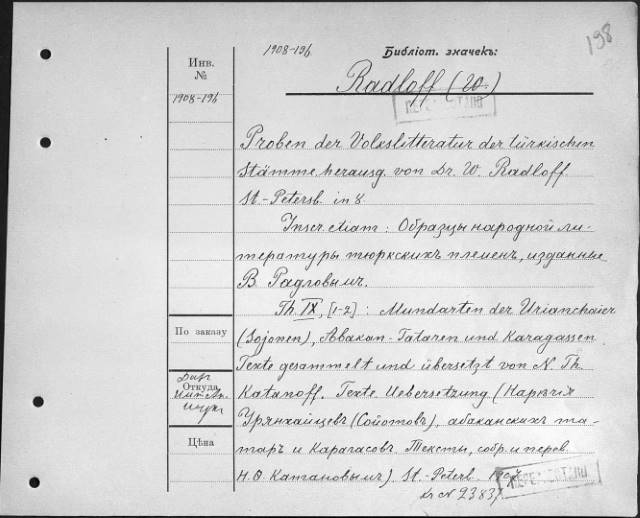 198
1908-196
Библіот. значекъ:
Инв.
№
1908-196
Radloff (W.)
ПЕРЕ
Proben der Volkslitteratur der türkischen
Stämme herausg. von Dr. W. Radloff.
St.-Petersb. in 8.
Inscr. etiam: Образцы народной ли-
тературы тюркскихъ племенъ, изданные
В. Радловымъ.
Th. IX, [1-2]: Mundarten der Urianchaier
По заказу
(Sojonen), Abakan-Tataren und Karagassen.
Texte gesammelt und übersetzt von N. Th.
Откуда
Katanoff. Texte. Uebersetzung (Нарѣчія
Урянхайцевъ (Сойотовъ), абаканскихъ та-
Цѣна
таръ и Карагасовъ. Тексты, собр. и перев.
Н. Ѳ. Катановымъ). St.-Petersb.
№ 23837